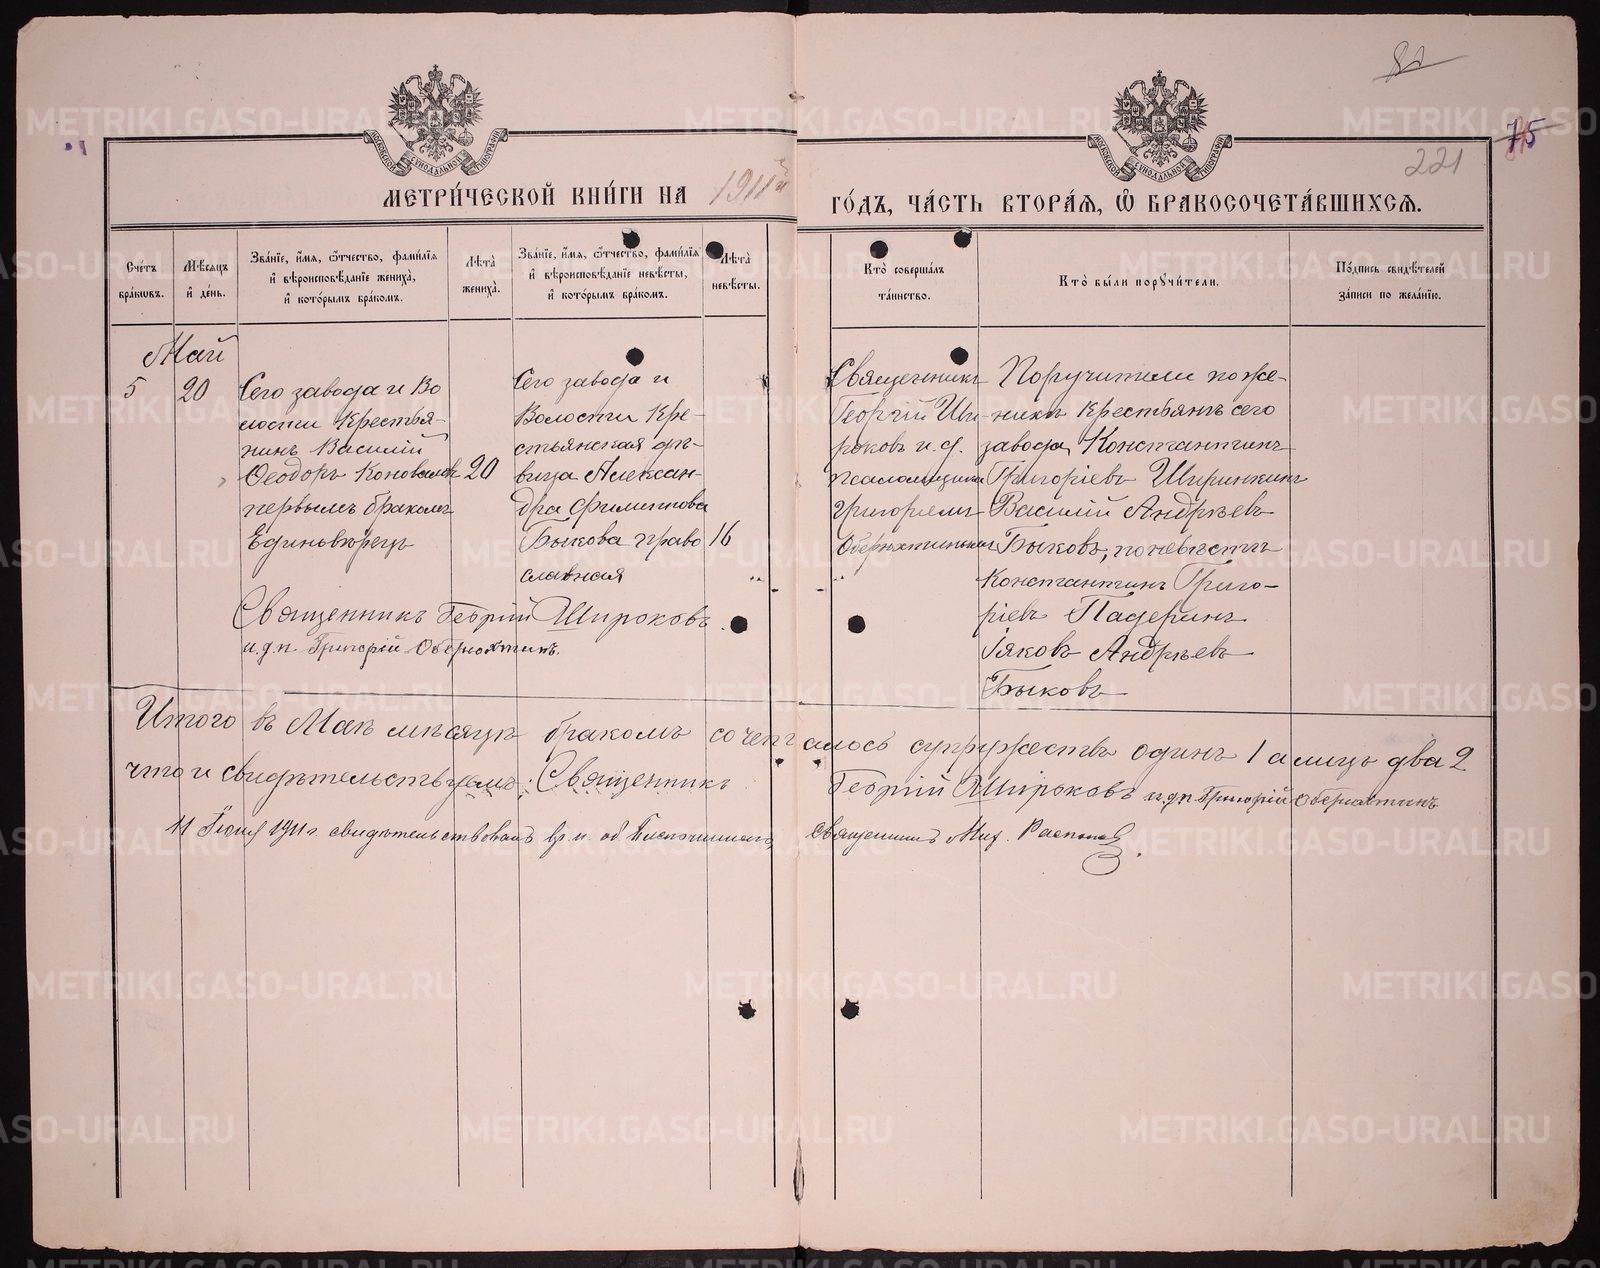 82
75
221
МОСКОВСКОЙ СѴНОДАЛЬНОЙ ТИПОГРАФІИ
МОСКОВСКОЙ СѴНОДАЛЬНОЙ ТИПОГРАФІИ
МЕТРИ́ЧЕСКОЙ КНИ́ГИ НА 1911й ГО́ДЪ, ЧА́СТЬ ВТОРА́Ѧ, Ѽ БРАКОСОЧЕТА́ВШИХСѦ.
Сче́тъ бра́кѡвъ.
Мѣ́сѧцъ и҆ де́нь.
Зва́нїе, и҆́мѧ, ѻ҆́тчество, фами́лїѧ и҆ вѣроисповѣ́данїе жениха̀, и҆ кото́рымъ бра́комъ.
Лѣ́та жениха̀.
Зва́нїе, и҆́мѧ, ѻ҆́тчество, фами́лїѧ и҆ вѣроисповѣ́данїе невѣ́сты, и҆ кото́рымъ бра́комъ.
Лѣ́та невѣ́сты.
Кто̀ соверша́лъ та́инство.
Кто̀ бы́ли порꙋчи́тели.
По́дпись свидѣ́телей за́писи по жела́нїю.
Май
5
20
Сего завода и Во
лости Крестья-
нинъ Василій
Ѳеодоръ Коноваловъ
первымъ бракомъ
Единовѣрецъ
20
Сего завода и
Волости Кре-
стьянская дѣ-
вица Алексан-
дра Филиппова
Быкова право
славная
16
Священникъ
Георгій Ши-
роковъ и.д.
псаломщика
Григорiемъ
Поручители по же-
нихѣ крестьянъ сего
завода, Константинъ
Григоріевъ Ширинкинъ
Василій Андрѣевъ
Быковъ, по невѣстѣ
Константинъ Григо-
ріевъ Падеринъ
Іяковъ Андрѣевъ
Быковъ
Священникъ Георгій Широковъ
и.д.п. Григорій Оберюхтинъ.
Итого въ Маѣ мѣсяцѣ бракомъ сочеталось супружествъ одинъ 1 а лицъ два 2
что и свидѣтельствуемъ: Священникъ Георгій Широковъ и.д.п. Григорій Оберюхтинъ
11 Іюня 1911 г. свидѣтельствовалъ об Благочиннаго, Священникъ Мих.
METRIKI.GASO-URAL.RU